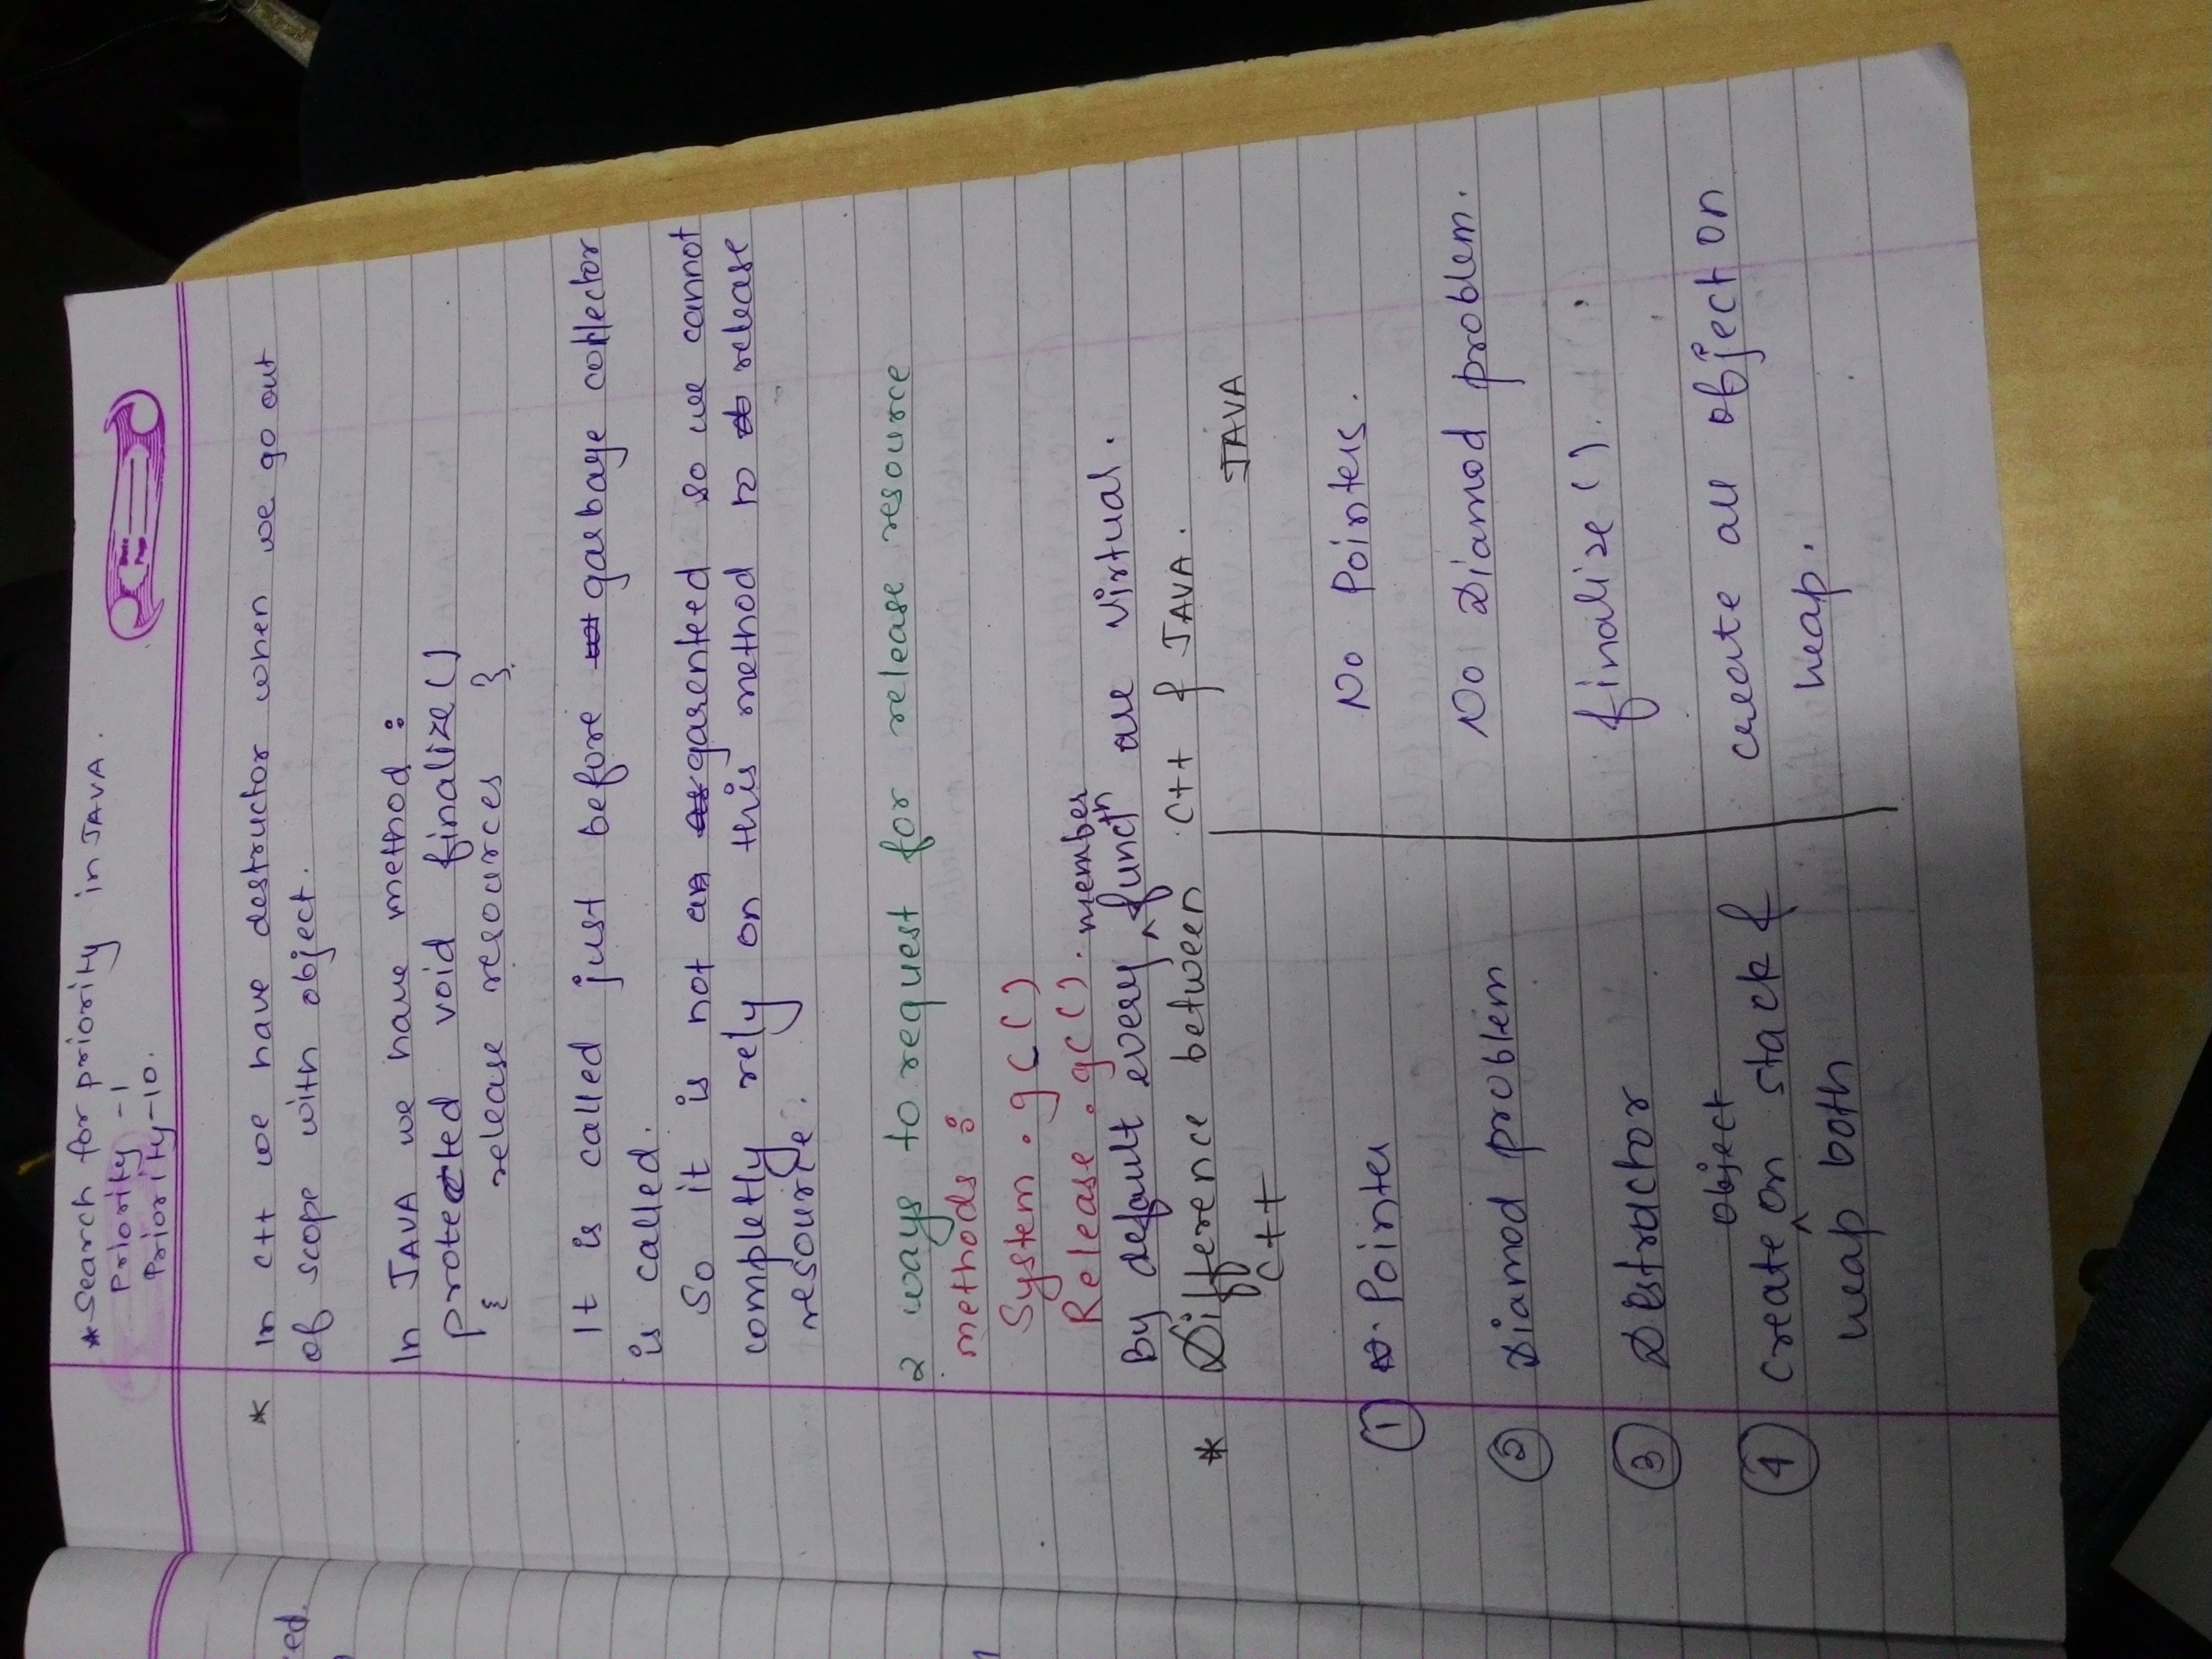 * Search for priority in JAVA.
Priority -1
Priority-10.
Date
Page
* In C++ we have destructor when we go out
of scope with object.
ed.
In JAVA we have method :
protected void finalize()
{ release resources }
It is called just before garbage collector
is called.
So it is not garenteed so we cannot
completly rely on this method to release
resource.
2 ways to request for release resource
methods :
System . gc()
Release . gc().
member
By default every ^ functn are virtual.
* Difference between C++ & JAVA.
C++ JAVA
① Pointer No Pointers.
② Diamod problem No Diamod problem.
③ Destructor finalize().
object
④ Create ^ on stack & create all object on
heap both heap.